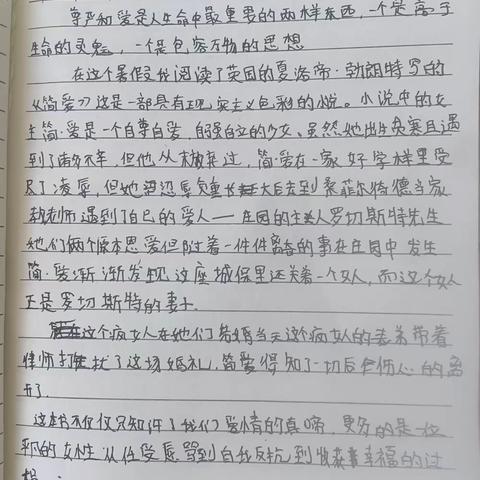 尊严和爱是人生命中最重要的两样东西,一个是高于
生命的灵魂,一个是包容万物的思想
在这个暑假我阅读了英国的夏洛蒂·勃朗特写的
《简爱》这是一部具有现实主义色彩的小说。小说中的女
主简·爱是一个自尊自爱,自强自立的少女、虽然她出生贫寒且遇
到了诸多不幸,但他从未放弃过,简·爱在一家寄宿学样里受
尽了凌辱,但她忍辱负重长大后去到桑菲尔特德当家
教老师遇到了自己的爱人——庄园的主人罗切斯特先生
她们两个原本恩爱但随着一件件离奇的事在庄园中发生
简·爱渐渐发现这座城保里还关着一个女人,而这个女人
正是罗切斯特的妻子.
这个疯女人在她们结婚当天这个疯女人的弟弟带着
律师打扰了这场婚礼,简爱得知了一切后伤心的离
开了.
这本书不仅仅只知许了我们爱情的真啼,更多的是一位
平凡的女性从任受辱骂到自我反抗到收获幸福的过
程.